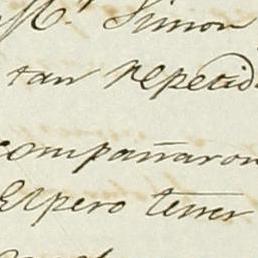 Mr. Simon
tan repetid
compañaron
Espero tener